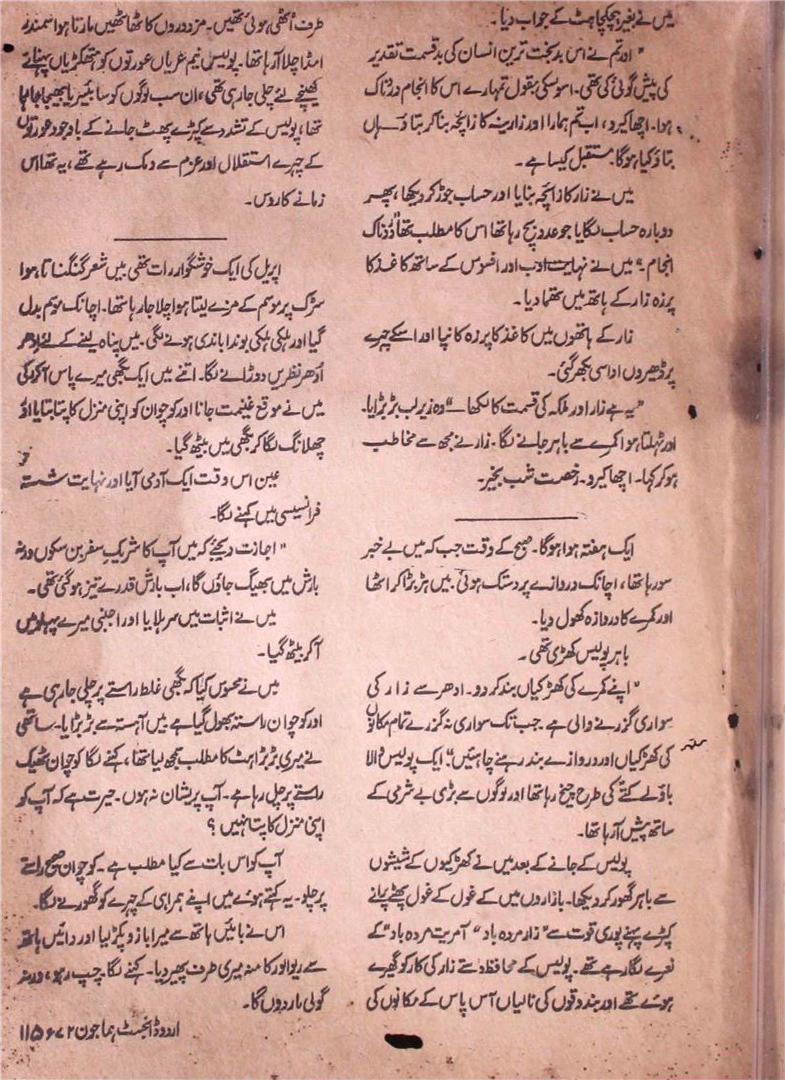 میں نے بغیر ہچکچاہٹ کے جواب دیا۔
"اور تم نے اس بدبخت ترین انسان کی بدقسمت تقدیر
کی پیش گوئی کی تھی۔ اسوسکی بقول تمہارے اس کا انجام دردناک
ہوا۔ اچھا کیرو، اب تم ہمارا اور زارینہ کا زائچہ بنا کر بتا دو۔ ہاں
بتاؤ کیا ہوگا۔ مستقبل کیسا ہے۔
میں نے زار کا زائچہ بنایا اور حساب جوڑ کر دیکھا، پھر
دوبارہ حساب لگایا جو عدد بچ رہا تھا اس کا مطلب تھا "دردناک
انجام۔" میں نے نہایت ادب اور افسوس کے ساتھ کاغذ کا
پرزہ زار کے ہاتھ میں تھما دیا۔
زار کے ہاتھوں میں کاغذ کا پرزہ کانپا اور اسکے چہرے
پر ڈھیروں اداسی بکھر گئی۔
"یہ ہے زار اور ملکہ کی قسمت کا لکھا۔" وہ زیر لب بڑبڑایا۔
اور ٹہلتا ہوا کمرے سے باہر جانے لگا۔ زار نے مجھ سے مخاطب
ہو کر کہا۔ اچھا کیرو۔ رخصت شب بخیر۔
ایک ہفتہ ہوا ہوگا۔ صبح کے وقت جب کہ میں بے خبر
سو رہا تھا، اچانک دروازے پر دستک ہوئی۔ میں ہڑبڑا کر اٹھا
اور کمرے کا دروازہ کھول دیا۔
باہر پولیس کھڑی تھی۔
"اپنے کمرے کی کھڑکیاں بند کر دو۔ ادھر سے زار کی
سواری گزرنے والی ہے۔ جب تک سواری نہ گزرے تمام مکانوں
کی کھڑکیاں اور دروازے بند رہنے چاہئیں۔" ایک پولیس والا
باؤلے کتے کی طرح چیخ رہا تھا اور لوگوں سے بڑی بے شرمی کے
ساتھ پیش آ رہا تھا۔
پولیس کے جانے کے بعد میں نے کھڑکیوں کے شیشوں
سے باہر گھور کر دیکھا۔ بازاروں میں کے غول کے غول پھٹے پرانے
کپڑے پہنے پوری قوت سے "زار مردہ باد" "آمریت مردہ باد" کے
نعرے لگا رہے تھے۔ پولیس کے محافظ دستے زار کی کار کو گھیرے
ہوئے تھے اور بندوقوں کی نالیاں آس پاس کے مکانوں کی
طرف اٹھی ہوئی تھیں۔ مزدوروں کا ٹھاٹھیں مارتا ہوا سمندر
امڈا چلا آ رہا تھا۔ پولیس نیم عریاں عورتوں کو ہتھکڑیاں پہنائے
کھینچے لئے چلی جا رہی تھی، ان سب لوگوں کو سائبیریا بھیجا جا رہا
تھا، پولیس کے تشدد سے کپڑے پھٹ جانے کے باوجود عورتوں
کے چہرے استقلال اور عزم سے دمک رہے تھے، یہ تھا اس
زمانے کا روس۔
اپریل کی ایک خوشگوار رات تھی میں شعر گنگناتا ہوا
سڑک پر موسم کے مزے لیتا ہوا چلا جا رہا تھا۔ اچانک موسم بدل
گیا اور ہلکی ہلکی بوندا باندی ہونے لگی۔ میں پناہ لینے کے لئے ادھر
ادھر نظریں دوڑانے لگا۔ اتنے میں ایک بگھی میرے پاس آ کر رکی
میں نے موقع غنیمت جانا اور کوچوان کو اپنی منزل کا پتا بتایا اور
چھلانگ لگا کر بگھی میں بیٹھ گیا۔
عین اس وقت ایک آدمی آیا اور نہایت شستہ
فرانسیسی میں کہنے لگا۔
"اجازت دیجئے کہ میں آپ کا شریک سفر بن سکوں ورنہ
بارش میں بھیگ جاؤں گا، اب بارش قدرے تیز ہو گئی تھی۔
میں نے اثبات میں سر ہلایا اور اجنبی میرے پہلو میں
آ کر بیٹھ گیا۔
میں نے محسوس کیا کہ بگھی غلط راستے پر چلی جا رہی ہے
اور کوچوان راستہ بھول گیا ہے میں آہستہ سے بڑبڑایا۔ ساتھی
نے میری بڑبڑاہٹ کا مطلب سمجھ لیا تھا، کہنے لگا کوچوان ٹھیک
راستے پر چل رہا ہے۔ آپ پریشان نہ ہوں۔ حیرت ہے کہ آپ کو
اپنی منزل کا پتا نہیں؟
آپ کو اس بات سے کیا مطلب ہے۔ کوچوان صحیح راستے
پر چلو۔ یہ کہتے ہوئے میں اپنے ہمراہی کے چہرے کو گھورنے لگا۔
اس نے بائیں ہاتھ سے میرا بازو پکڑ لیا اور دائیں ہاتھ
سے ریوالور کا منہ میری طرف پھیر دیا۔ کہنے لگا۔ چپ رہو، ورنہ
گولی مار دوں گا۔
اردو ڈائجسٹ ہما جون ۷۲ء ۱۱۵